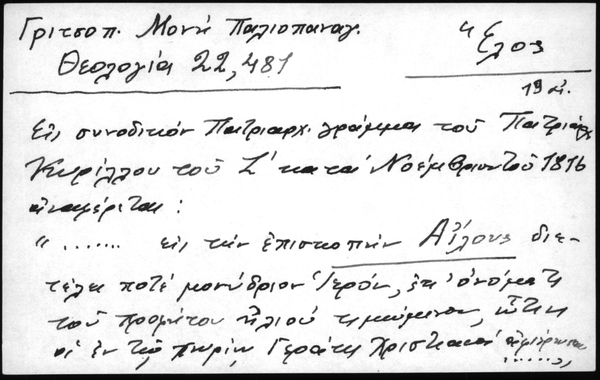 Γριτσοπ. Μονή Παλιοπαναγ.
Θεολογία 22,481
"Ελος
19 αἰ.
Εἰς συνοδικόν Πατριαρχ. γράμμα τοῦ Πατριάρχ
Κυρίλλου τοῦ Ζ' κατά Νοέμβριον τοῦ 1816
ἀναφέρεται :
" ....... εἰς τὴν ἐπισκοπὴν Αἵλους διε-
τέλει ποτέ μονύδριον Ἱερόν, ἐπ' ὀνόματι
τοῦ προφήτου Ἠλιού τιμώμενον, ὅπερ
οἱ ἐν τῷ χωρίῳ Γεράκι Χριστιανοί
......,,